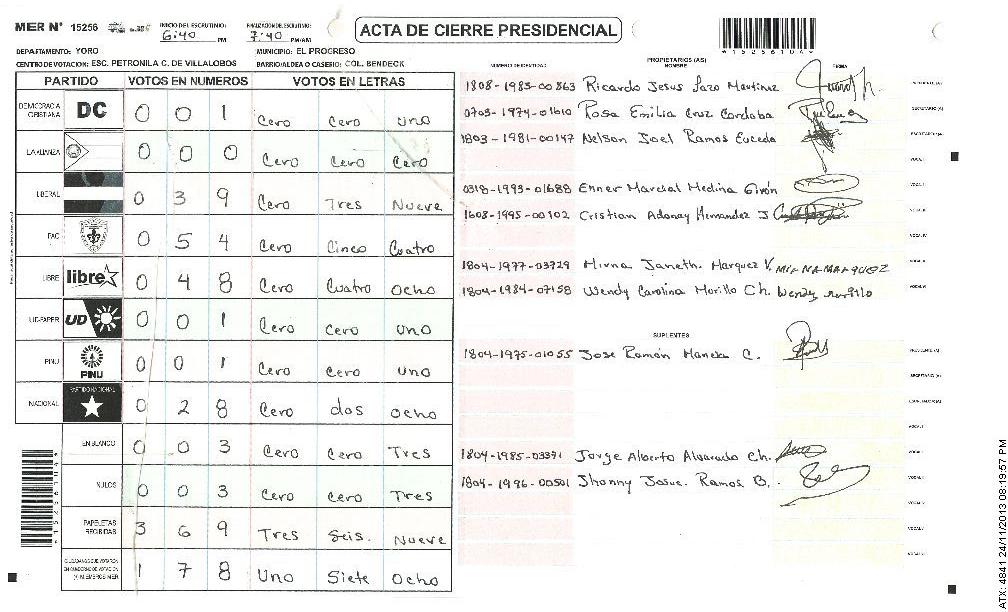 MER N° 15256
INICIO DEL ESCRUTINIO: 6:40 PM
FINALIZACION DEL ESCRUTINIO: 7:40 PM/AM
ACTA DE CIERRE PRESIDENCIAL
DEPARTAMENTO: YORO
MUNICIPIO: EL PROGRESO
CENTRO DE VOTACION: ESC. PETRONILA C. DE VILLALOBOS
BARRIO/ALDEA O CASERIO: COL. BENDECK
PARTIDO VOTOS EN NUMEROS VOTOS EN LETRAS
DEMOCRACIA CRISTIANA DC 0 0 1 Cero Cero uno
LA ALIANZA 0 0 0 Cero Cero Cero
LIBERAL 0 3 9 Cero Tres Nueve
PAC 0 5 4 Cero Cinco Cuatro
LIBRE libre 0 4 8 Cero Cuatro ocho
UD-FAPER UD 0 0 1 Cero Cero uno
PINU PINU 0 0 1 Cero Cero uno
NACIONAL PARTIDO NACIONAL 0 2 8 Cero dos ocho
EN BLANCO 0 0 3 Cero Cero Tres
NULOS 0 0 3 Cero Cero Tres
PAPELETAS RECIBIDAS 3 6 9 Tres Seis. Nueve
1 7 8 Uno Siete Ocho
NUMERO DE IDENTIDAD
PROPIETARIOS (AS)
NOMBRE
FIRMA
1808-1983-00863 Ricardo Jesus Lazo Martinez
0703-1974-01610 Rosa Emilia Cruz Cordoba
1803-1981-00147 Nelson Joel Ramos Euceda
0318-1993-01688 Enner Marcial Medina Girón
1608-1995-00102 Cristian Adonay Hernandez J
1804-1977-03729 Mirna Janeth. Marquez V. MIRNA MARQUEZ
1804-1984-07158 Wendy Carolina Morillo Ch. Wendy morillo
SUPLENTES
1804-1975-01055 Jose Ramón C.
1804-1985-03371 Jorge Alberto Alvarado Ch.
1804-1996-00501 Jhonny Josue. Ramos B.
ATX: 4841 24/11/2013 08:19:57 PM